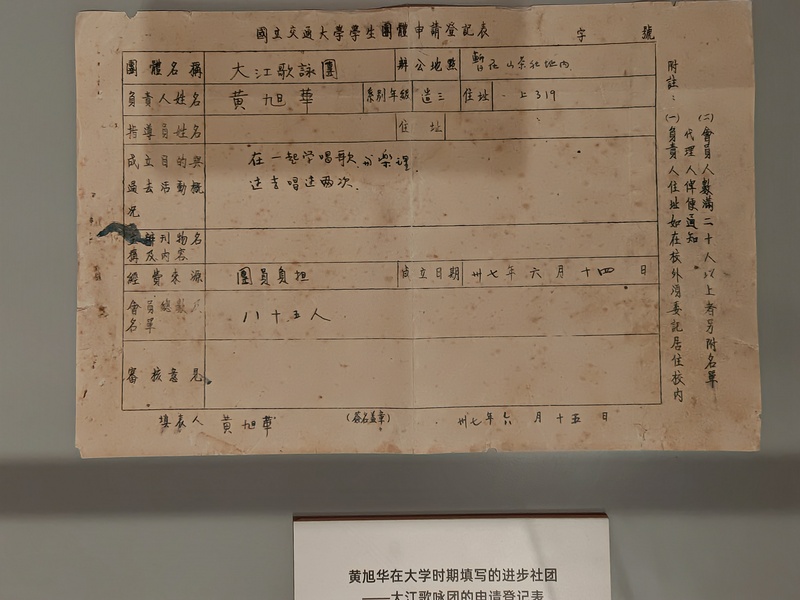 國立交通大學學生團體申請登記表 字 號
團體名稱 大江歌詠團 辦公地點 暫在山茶社地內
負責人姓名 黄旭華 系别年級 造三 住址 上319
指導員姓名 住址
成立目的與過去活動概況 在一起學唱歌
过去唱过两次
刊物名稱及內容
經費來源 團員負担 成立日期 卅七年六月十四日
會員總數 名單 八十五人
審核意見
填表人 黄旭華 (簽名盖章) 卅七年六月十五日
附註：
(一)負責人住址如在校外須委託居住校內
代理人俾便通知
(二)會員人數滿二十人以上者另附名單
黄旭华在大学时期填写的进步社团
——大江歌咏团的申请登记表